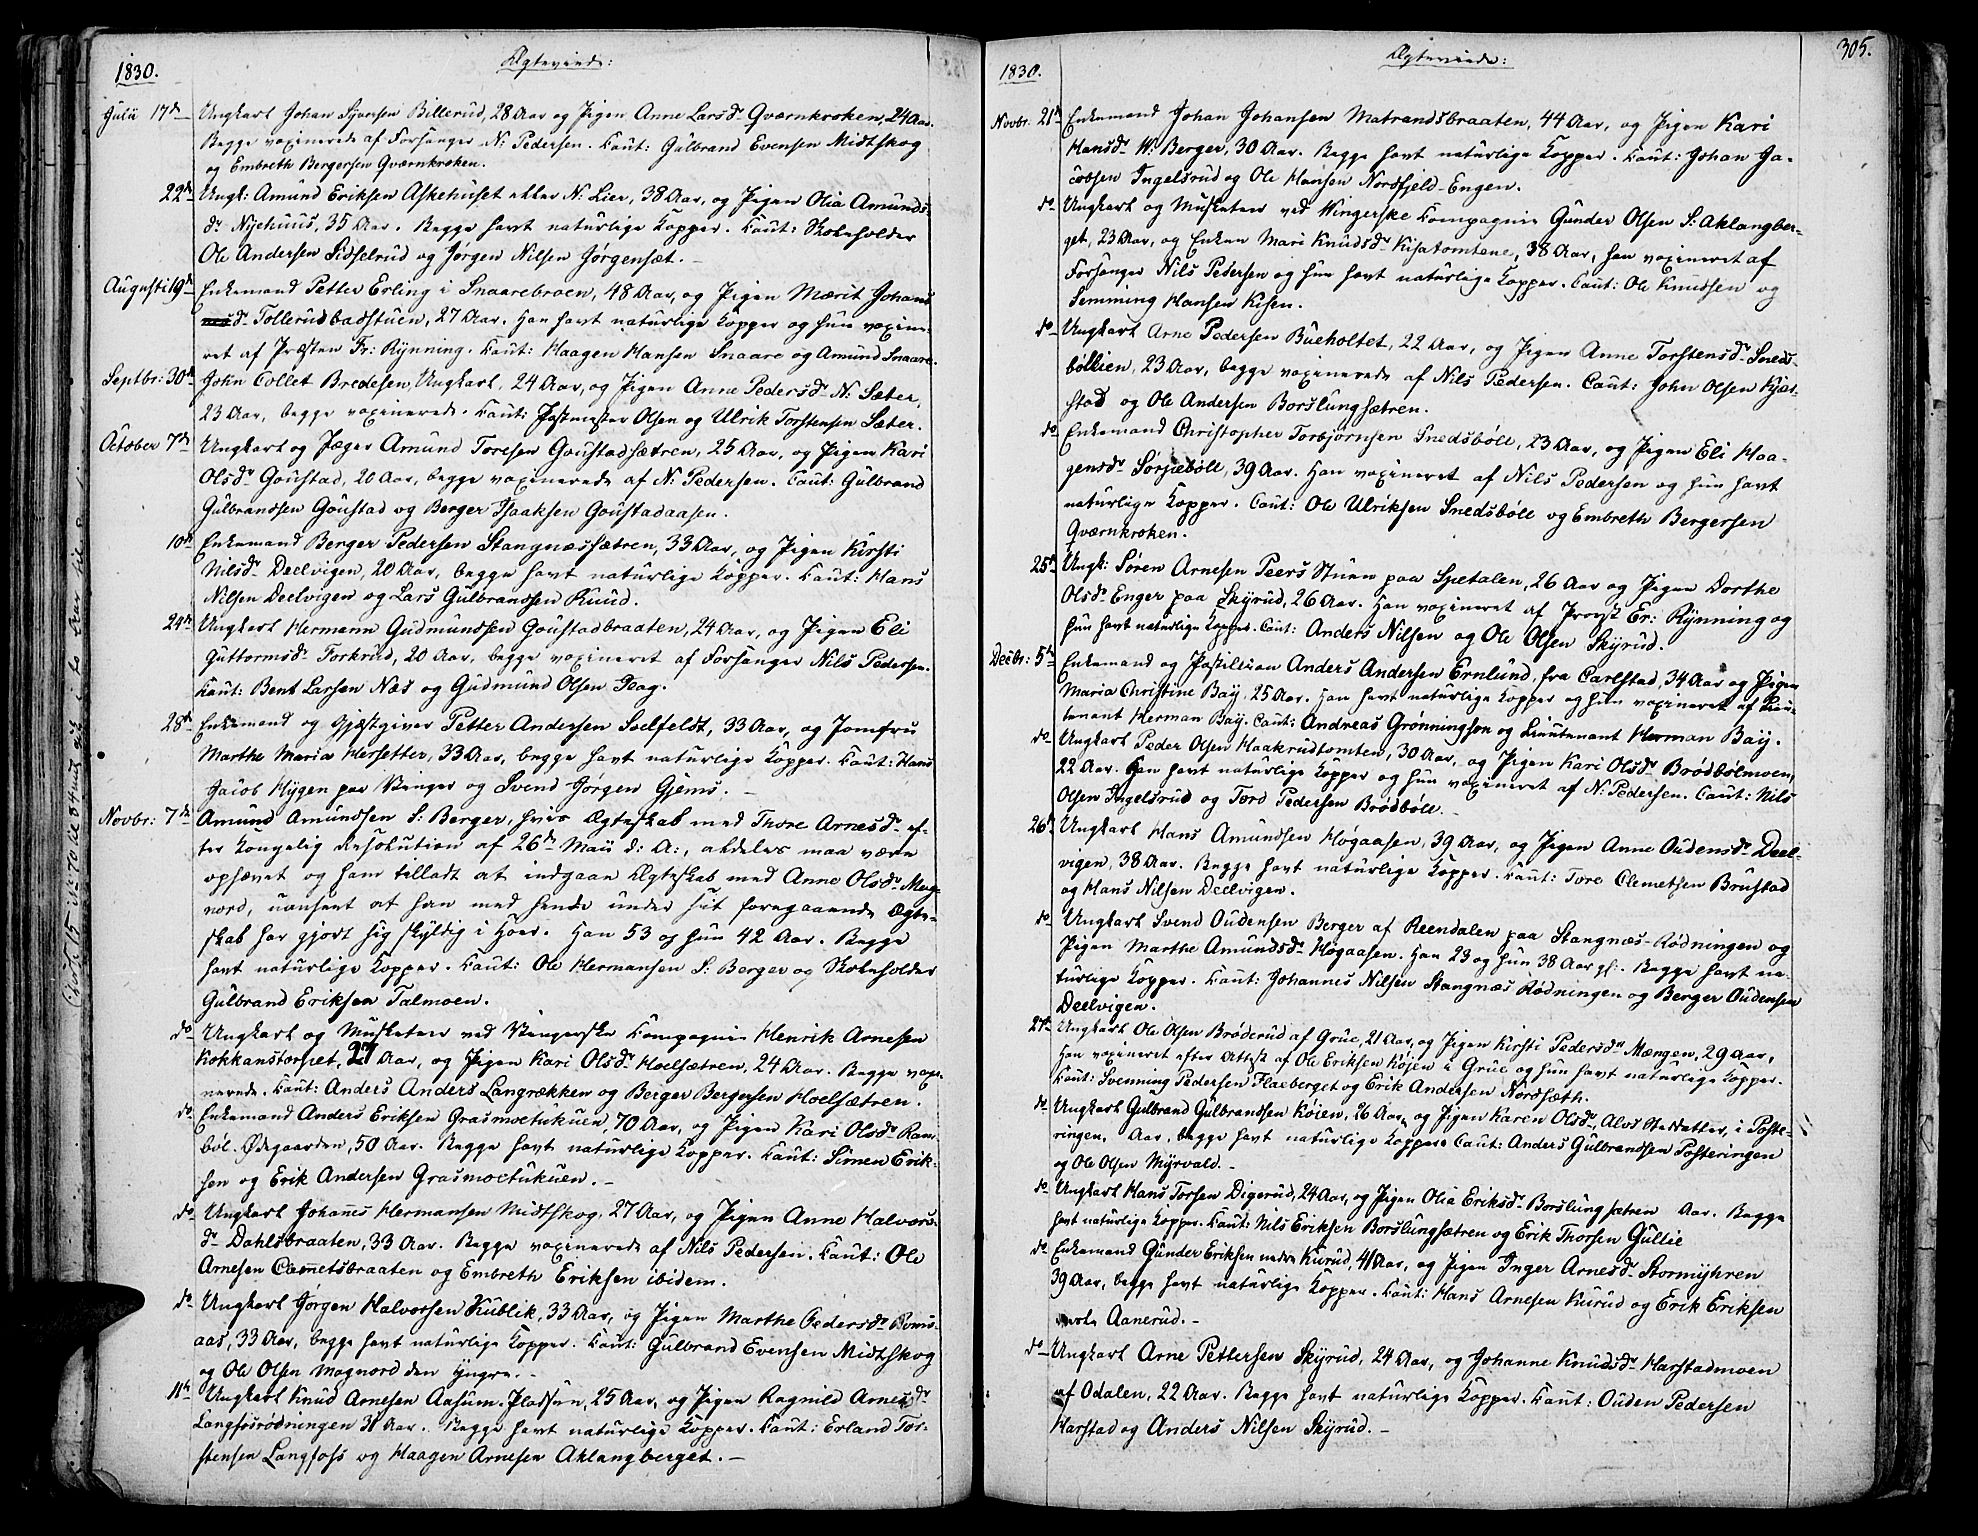 1830.
Ægteviede:
Julii 17de Ungkarl Johan Syversen Billerud, 28 Aar og Pigen Anne Larsdr Qværnkroken, 24 Aar.
Begge vaxinerede af Forsanger N: Pedersen. Caut: Gulbrand Evensen Midtskog
og Embreth Bergersen Qværnkroken.
22de Ungk: Amund Eriksen Askehuset eller N: Lier, 38 Aar, og Pigen Olia Amunds-
dr Nyehuus, 35 Aar. Begge havt naturlige Kopper. Caut: Skoleholder
Ole Andersen Sidselrud og Jørgen Nilsen Jørgensæt. –
Augusti 19de Enkemand Petter Erling i Snaarebroen, 48 Aar, og Pigen Mærit Johans
dr Tollerudbadstuen, 27 Aar. Han havt naturlige Kopper og hun vaxine-
ret af Præsten Fr: Rynning. Caut: Haagen Hansen Snaare og Amund Snaare.
Septbr: 30te John Collet Bredesen, Ungkarl, 24 Aar, og Pigen Anne Pedersdr N: Sæter,
23 Aar, begge vaxinerede. Caut: Postmester Olsen og Ulrik Torstensen Sæter.
October 7de Ungkarl og Jæger Amund Toresen Goustadsætren, 25 Aar, og Pigen Kari
Olsdr Goustad, 20 Aar, begge vaxinerede af N: Pedersen. Caut: Gulbrand
Gulbrandsen Goustad og Berger Isaaksen Goustadaasen.
10de Enkemand Berger Pedersen Stangnæssætren, 33 Aar, og Pigen Kirsti
Nilsdr Deelvigen, 20 Aar, begge havt naturlige Kopper. Caut: Hans
Nilsen Deelvigen og Lars Gulbrandsen Ruud.
24de Ungkarl Hermann Gudmundsen Goustadbraaten, 24 Aar, og Pigen Eli
Guttormsdr Torkrud, 20 Aar, begge vaxineret af Forsanger Nils Pedersen.
Caut: Bent Larsen Næs og Gudmund Olsen Hag.
28de Enkemand og Gjæstgiver Petter Andersen Solfeldt, 33 Aar, og Jomfru
Marthe Maria Hersetter, 33 Aar, begge havt naturlige Kopper. Caut: Hans
Jacob Hygen paa Vinger og Svend Jørgen Gjems. –
Novbr: 7de Amund Amundsen S: Berger, hvis Ægteskab med Thore Arnesdr ef-
ter Kongelig Resolution af 26de Maii d: A:, aldeles maa være
ophævet og ham tilladt at indgaae Ægteskab med Anne Olsdr Mag-
nord, uanseet at han med hende under sit foregaaende Ægte-
skab har gjort sig skyldig i Hoer. Han 53 og hun 42 Aar. Begge
havt naturlige Kopper. Caut: Ole Hermansen S: Berger og Skoleholder
Gulbrand Eriksen Talmoen.
do Ungkarl og Musketeer ved Vingerske Compagnie Henrik Arnesen
Kokkanstorpet, 27 Aar, og Pigen Kari Olsdr Hoelsætren, 24 Aar. Begge vaxi-
nerede. Caut: Anders Anders Langrækken og Berger Bergersen Hoelsætren.
do Enkemand Anders Eriksen Grasmoctukuen, 70 Aar, og Pigen Kari Olsdr Ram-
böl. Ødegaarden, 50 Aar. Begge havt naturlige Kopper. Caut: Simen Erik-
sen og Erik Andersen Grasmoctukuen. –
do Ungkarl Johanes Hermansen Midtskog, 27 Aar, og Pigen Anne Halvors-
dr Dahlsbraaten, 33 Aar. Begge vaxinerede af Nils Pedersen. Caut: Ole
Arnesen Clemetsbraaten og Embreth Eriksen ibidem.
do Ungkarl Jørgen Halvorsen Kublik, 33 Aar, og Pigen Marthe Pedersdr Roms-
aas, 33 Aar, begge havt naturlige Kopper. Caut: Gulbrand Evensen Midtskog
og Ole Olsen Magnord den yngre. –
11te Ungkarl Knud Arnesen Aasum-Pladsen, 25 Aar, og Pigen Ragnild Arnesdr
Langfosrødningen 31 Aar. Begge havt naturlige Kopper. Caut: Erland Tor-
stensen Langfoss og Haagen Arnesen Aklangberget. –
1830.
Ægteviede:
305.
Novbr. 21de Enkemand Johan Johansen Matrandsbraaten, 44 Aar, og Pigen Kari
Hansdr W: Berger, 30 Aar. Begge havt naturlige Kopper. Caut: Johan Ja-
cobsen Ingelsrud og Ole Hansen Nordfjeld-Engen.
do Ungkarl og Musketeer ved Wingerske Compagnie Gunder Olsen S: Aklangber-
get, 23 Aar, og Enken Mari Knudsdr Kisatomtene, 38 Aar, han vaxineret af
Forsanger Nils Pedersen og hun havt naturlige Kopper. Caut: Ole Knudsen og
Semming Hansen Kisen.
do Ungkarl Arne Pedersen Bueholtet, 22 Aar, og Pigen Anne Torstensdr Sneds-
böllien, 23 Aar, begge vaxinerede af Nils Pedersen. Caut: John Olsen Kjæl-
stad og Ole Andersen Borslungsætren.
do Enkemand Christopher Torbjørnsen Snedsböle, 23 Aar, og Pigen Eli Haa-
gensdr Sorpeböle, 39 Aar. Han vaxineret af Nils Pedersen og hun havt
naturlige Kopper. Caut: Ole Ulriksen Snedsböle og Embreth Bergersen
Qværnkroken.
25de Ungk: Søren Arnesen Peers Stuen paa Spetalen, 26 Aar og Pigen Dorthe
Olsdr Enger paa Skyrud, 26 Aar. Han vaxineret af Provst Er: Rynning og
hun havt naturlige Kopper. Caut: Anders Nilsen og Ole Olsen Skyrud.
Decbr: 5te Enkemand og Postillion Anders Andersen Ernlund, fra Carlstad, 34 Aar og Pigen
Maria Christine Bay, 25 Aar. Han havt naturlige Kopper og hun vaxineret af Lieu-
tenant Herman Bay. Caut: Andreas Grønningson og Lieutenant Herman Bay.
do Ungkarl Peder Olsen Haakrudtomten, 30 Aar, og Pigen Kari Olsdr Brödbölmoen,
22 Aar. Han havt naturlige Kopper og hun vaxineret af N: Pedersen. Caut: Nils
Olsen Ingelsrud og Tord Pedersen Brødböle.
26de Ungkarl Hans Amundsen Høgaasen, 39 Aar, og Pigen Anne Oudensdr Deel-
vigen, 38 Aar. Begge havt naturlige Kopper. Caut: Tore Clemetsen Brustad
og Hans Nilsen Deelvigen.
do Ungkarl Svend Oudensen Berger af Reendalen paa Stangnæs-Rødningen og
Pigen Marthe Amundsdr Høgaasen. Han 23 og hun 38 Aar gl:. Begge havt na-
turlige Kopper. Caut: Johannes Nilsen Stangnæs Rødningen og Berger Oudensen
Deelvigen.
27de Ungkarl Ole Olsen Brøderud af Grue, 21 Aar, og Pigen Kirsti Pedersdr Mængen, 29 Aar,
Han vaxineret efter Attest af Ole Eriksen Kojen i Grue og hun havt naturlige Kopper.
Caut: Svenning Pedersen Flaeberget og Erik Andersen Nordsæth.
do Ungkarl Gulbrand Gulbrandsen Køien, 26 Aar, og Pigen Karen Olsdr, Alvs Steddatter, i Poste-
ringen, Aar, begge havt naturlige Kopper. Caut: Anders Gulbrandsen Posteringen
og Ole Olsen Myrvold. –
do Ungkarl Hans Torsen Digerud, 24 Aar, og Pigen Olia Eriksdr Borslungsætren Aar. Begge
havt naturlige Kopper. Caut: Nils Eriksen Borslungsætren og Erik Thorsen Gullie
do Enkemand Gunder Eriksen nedre Kurud, 41 Aar, og Pigen Inger Arnesdr Stormyhren
39 Aar, begge havt naturlige Kopper. Caut: Hans Arnesen Kurud og Erik Eriksen
Aanerud. –
do Ungkarl Arne Pettersen Skyrud, 24 Aar, og Johanne Knudsdr Harstadmoen
af Odalen, 22 Aar. Begge havt naturlige Kopper. Caut: Ouden Pedersen
Harstad og Anders Nilsen Skyrud. –